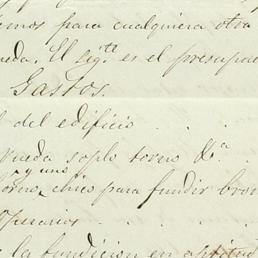 emos para cualquiera otra
eda. El sigte es el presupu
Gastos.
l del edificio . . .
rueda soplo torno &a
y uno
horno chico para fundir bron
Operarios . . .
e la fundicion en aptitud